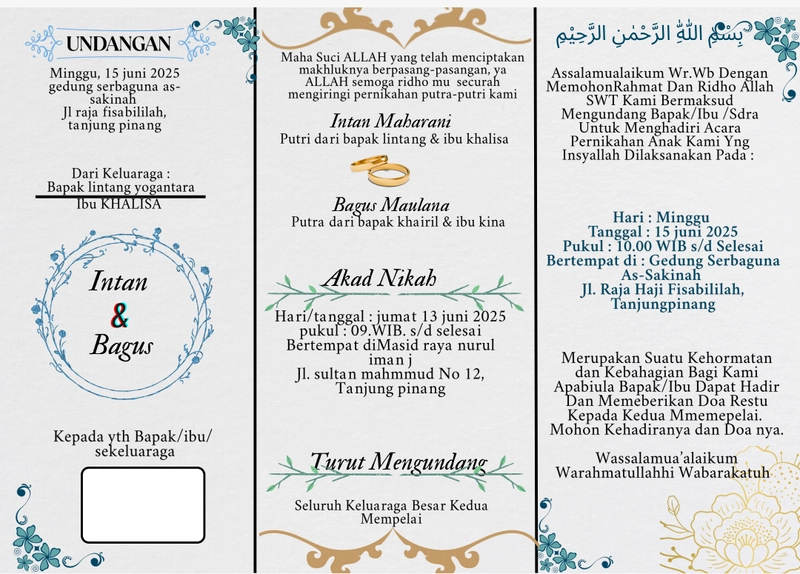 UNDANGAN
Minggu, 15 juni 2025
gedung serbaguna as-
sakinah
Jl raja fisabililah,
tanjung pinang
Dari Keluaraga :
Bapak lintang yogantara
Ibu KHALISA
Intan
&
Bagus
Kepada yth Bapak/ibu/
sekeluaraga
Maha Suci ALLAH yang telah menciptakan
makhluknya berpasang-pasangan, ya
ALLAH semoga ridho mu securah
mengiringi pernikahan putra-putri kami
Intan Maharani
Putri dari bapak lintang & ibu khalisa
Bagus Maulana
Putra dari bapak khairil & ibu kina
Akad Nikah
Hari/tanggal : jumat 13 juni 2025
pukul : 09.WIB. s/d selesai
Bertempat diMasid raya nurul
iman j
Jl. sultan mahmmud No 12,
Tanjung pinang
Turut Mengundang
Seluruh Keluaraga Besar Kedua
Mempelai
بِسْمِ اللهِ الرَّحْمٰنِ الرَّحِيْمِ
Assalamualaikum Wr.Wb Dengan
MemohonRahmat Dan Ridho Allah
SWT Kami Bermaksud
Mengundang Bapak/Ibu /Sdra
Untuk Menghadiri Acara
Pernikahan Anak Kami Yng
Insyallah Dilaksanakan Pada :
Hari : Minggu
Tanggal : 15 juni 2025
Pukul : 10.00 WIB s/d Selesai
Bertempat di : Gedung Serbaguna
As-Sakinah
Jl. Raja Haji Fisabililah,
Tanjungpinang
Merupakan Suatu Kehormatan
dan Kebahagian Bagi Kami
Apabiula Bapak/Ibu Dapat Hadir
Dan Memeberikan Doa Restu
Kepada Kedua Mmemepelai.
Mohon Kehadiranya dan Doa nya.
Wassalamua'alaikum
Warahmatullahhi Wabarakatuh